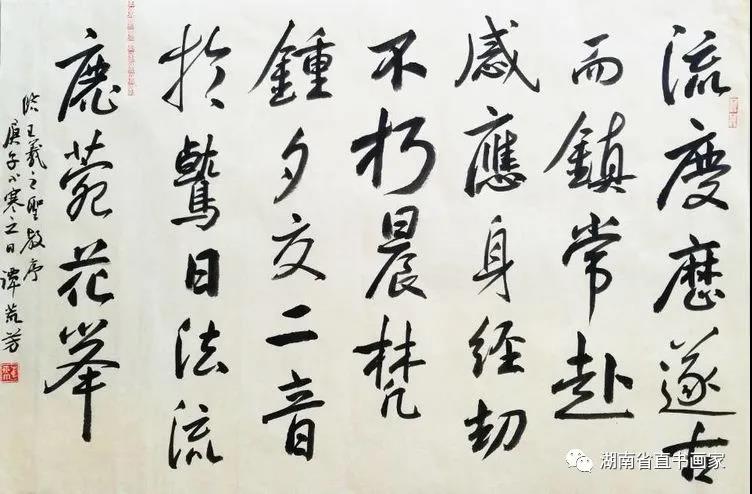 流慶歷遂古
而鎮常赴
感應身經劫
不朽晨梵
鍾夕交二音
於鷲日法流
鹿菀花峯
临王羲之聖教序
庚子小寒之日 譚芳
湖南省直书画家